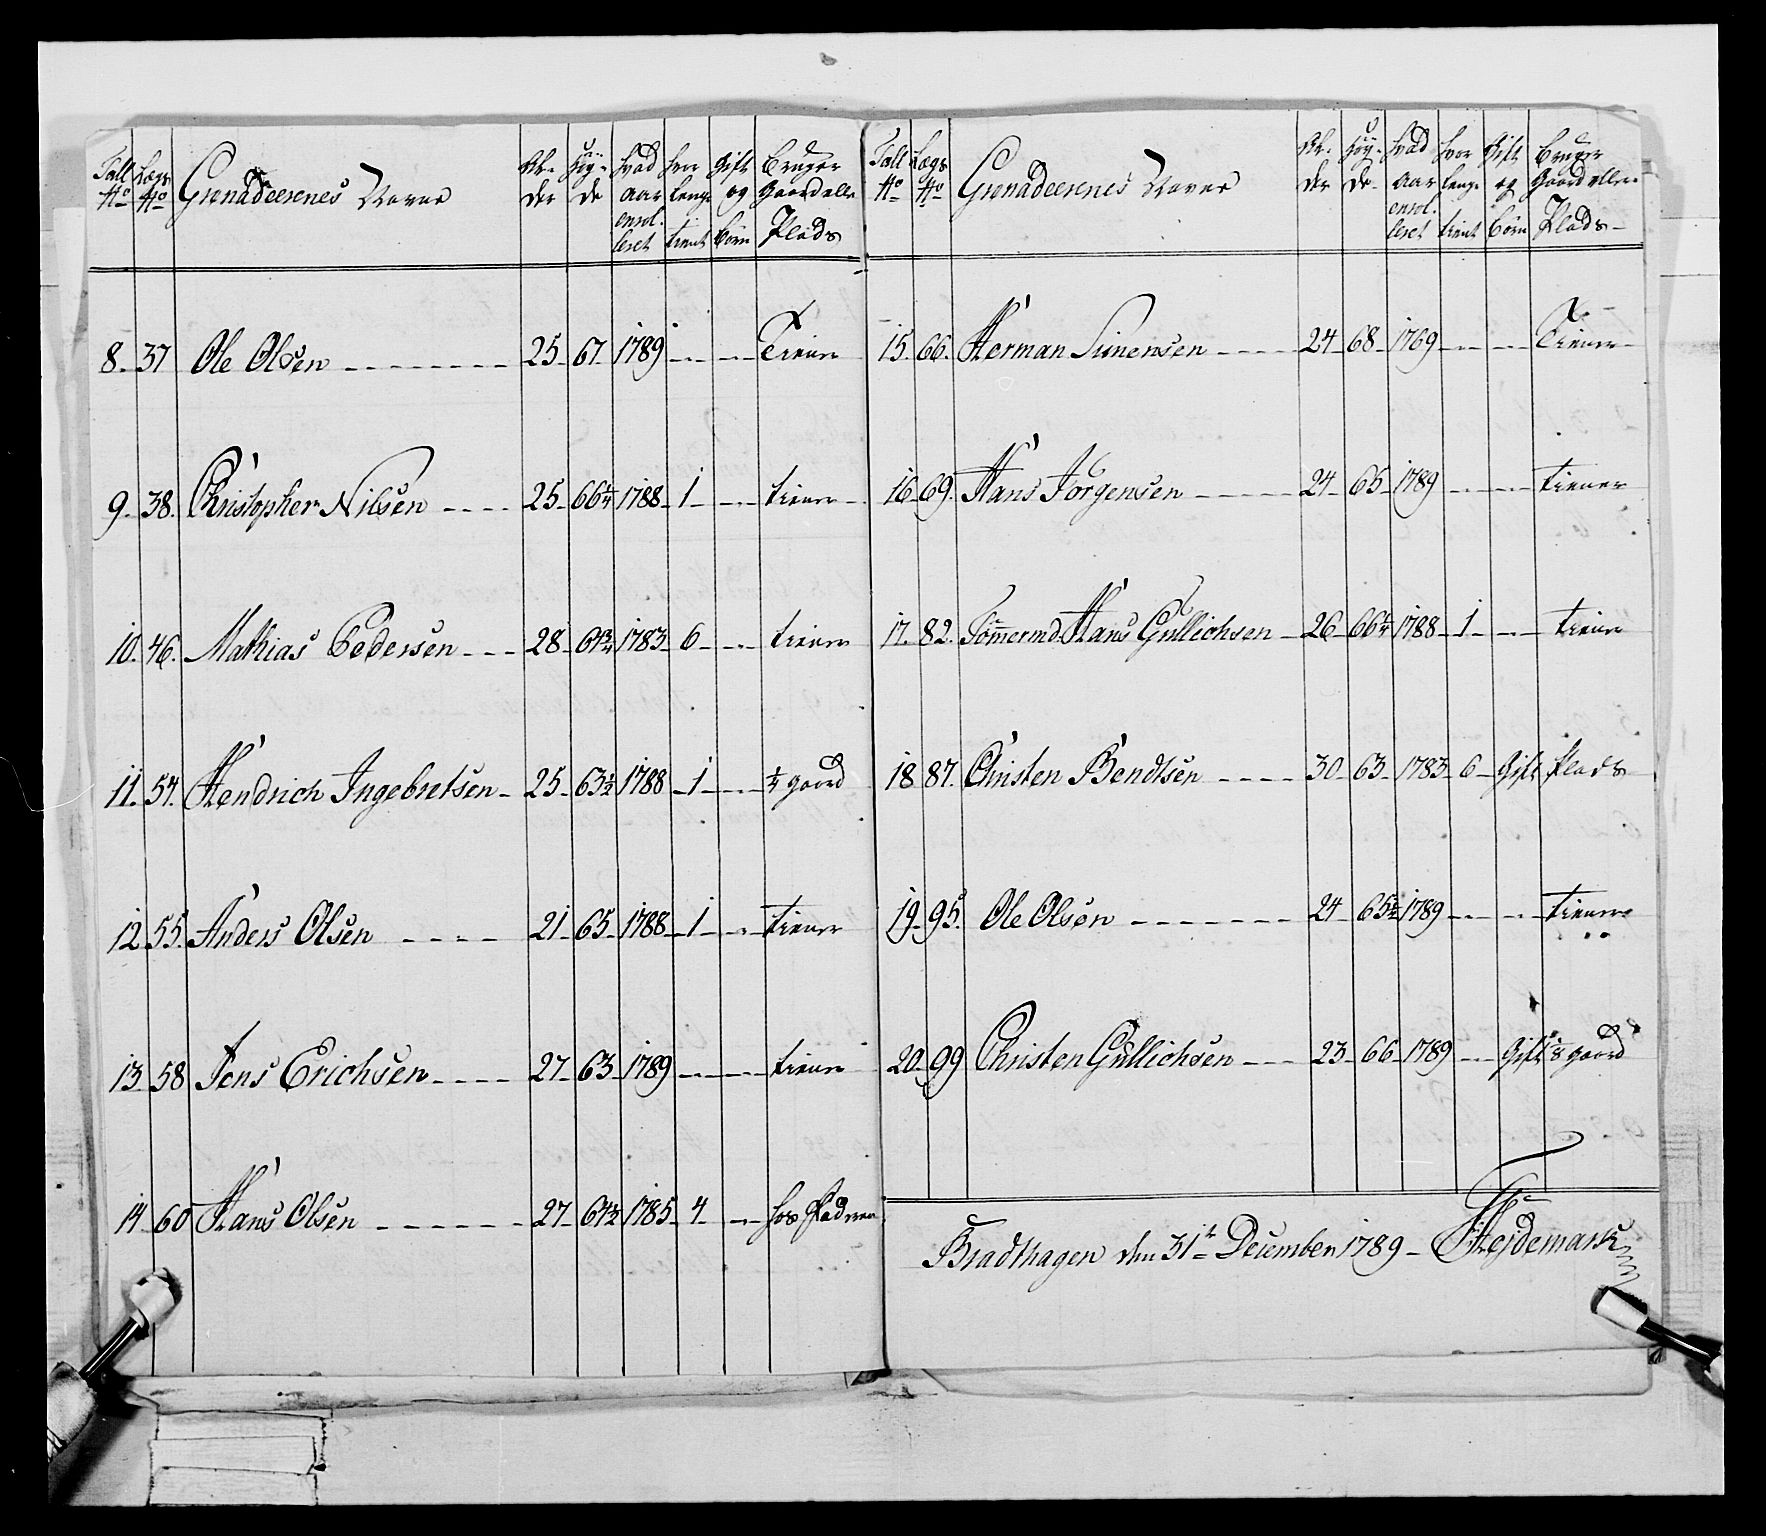 Tall No Lægs No Grenadeerenes Navne Al-der Høy-de hvad aar enrol-leret hvor lenge tient Gift og børn Bruger Gaard eller Plads
8. 37 Ole Olsen 25 67 1789 Tiener
9. 38. Christopher Nilsen 25 66¼ 1788 1 tiener
10. 46. Mathias Pedersen 28 64¾ 1783 6 tiener
11. 54. Hendrich Ingebretsen 25 63½ 1788 1 ¼ gaard
12 55. Anders Olsen 21 65 1788 1 tiener
13 58 Jens Erichsen 27 63 1789 tiener
14 60 Hans Olsen 27 64½ 1785 4 hos Fad
Tall No Lægs No Grenadeerenes Navne Al-der Høy-de hvad aar enrol-leret hvor lenge tient Gift og børn Bruger Gaard eller Plads
15 66. Herman Simensen 24 68 1769 Tiener
16 69. Hans Jørgensen 24 65 1789 tiener
17. 82. Tømmermd. Hans Gullichsen 26 66¼ 1788 1 tiener
18 87. Christen Bendtsen 30 63 1783 6 Gift Plads
19 95. Ole Olsen 24 65½ 1789 tiener
20 99 Christen Gullichsen 23 66 1789 Gift gaard
Bradthagen den 31te December 1789 Hejdemark